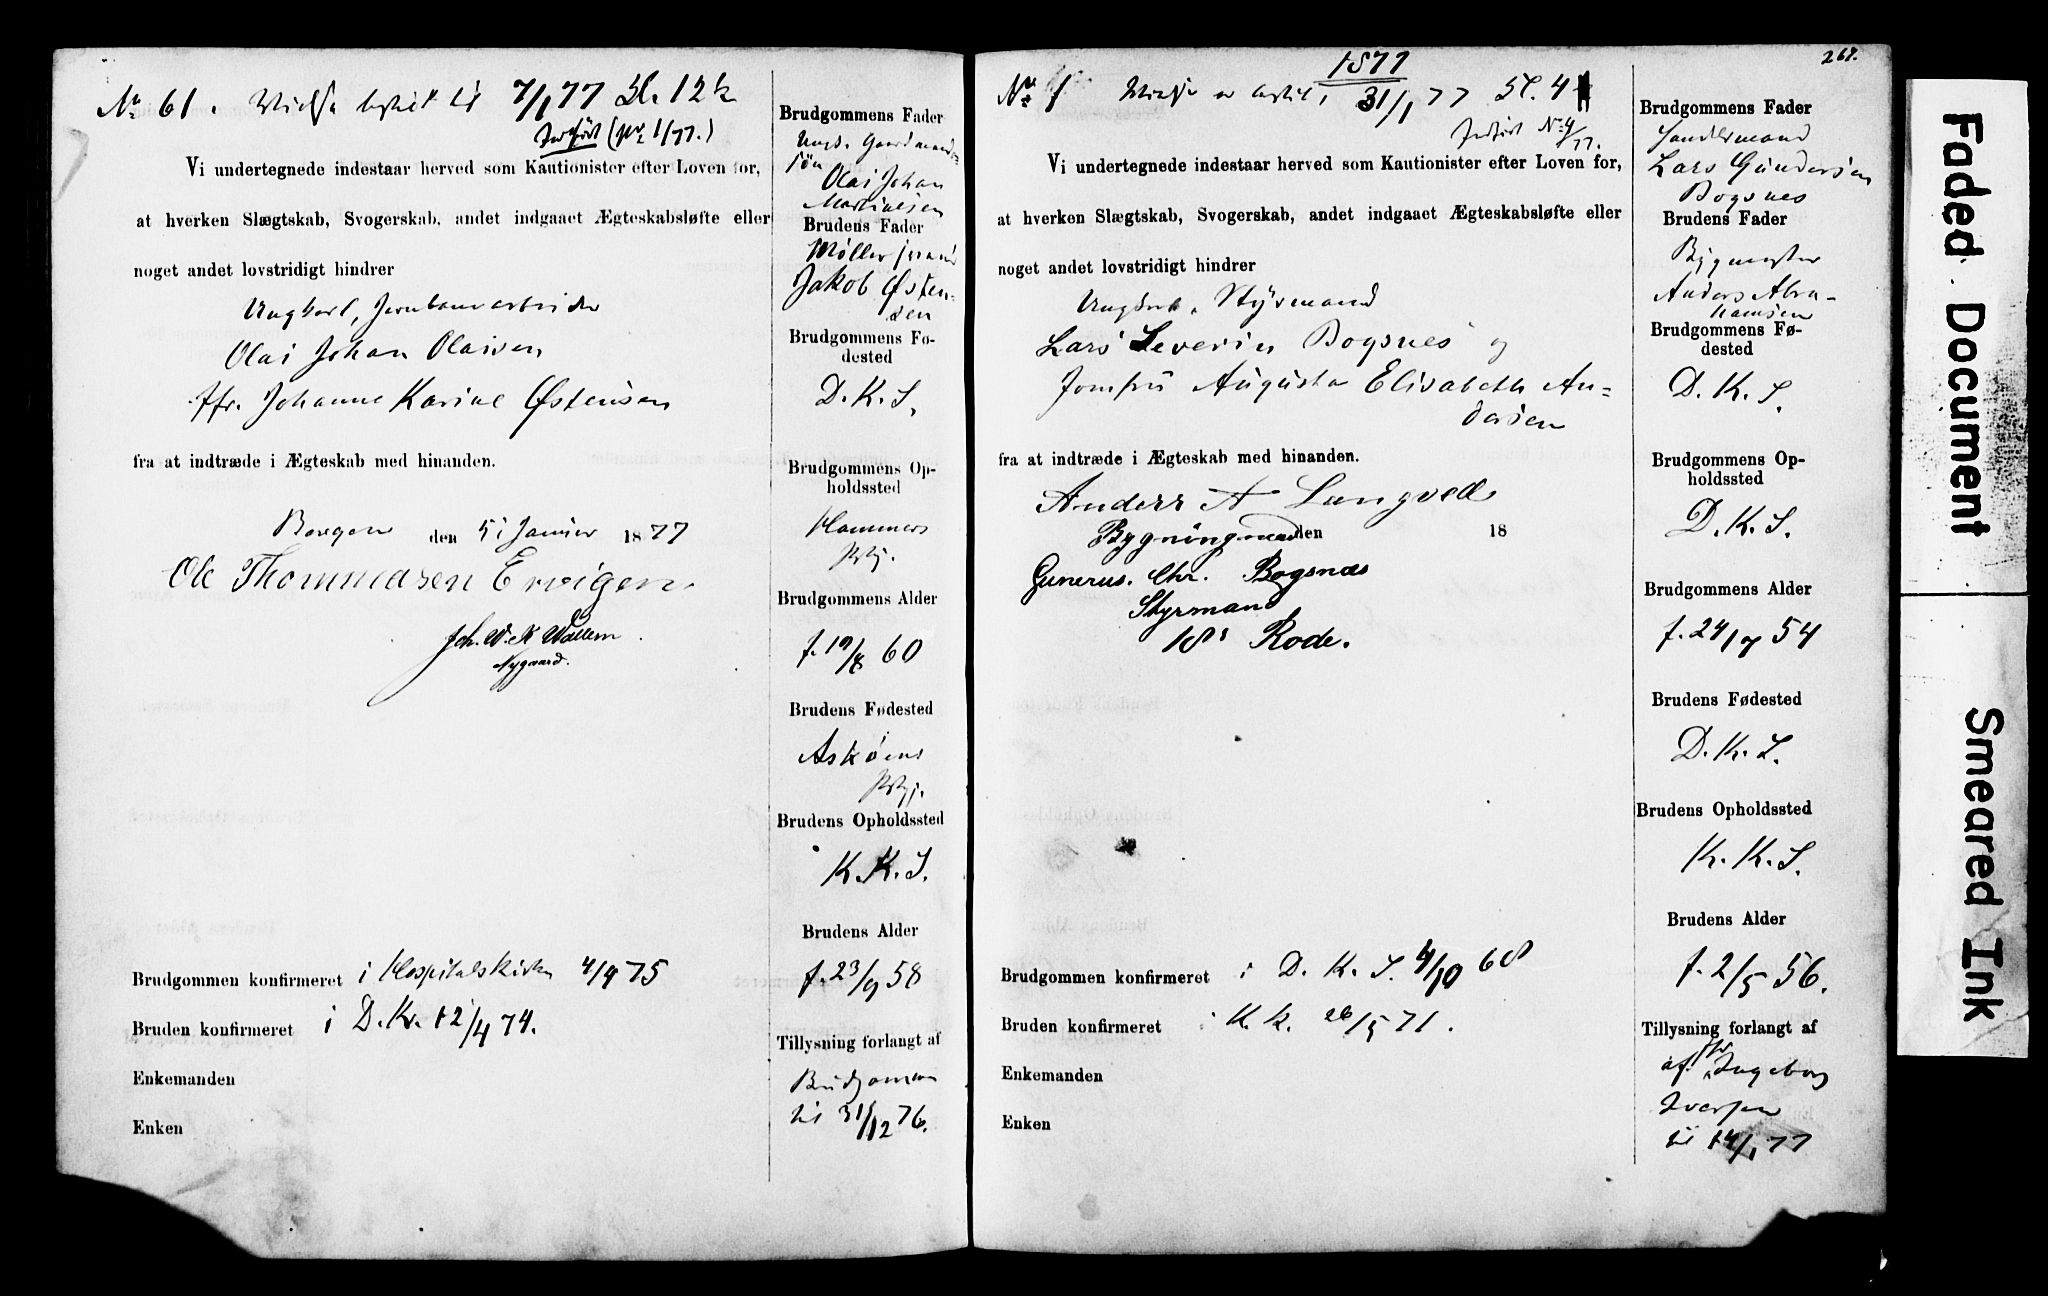 No 61. Vielse bestilt til 7/1 77 Kl. 12 1/2
Indført (No 1/77.)
Vi undertegnede indestaar herved som Kautionister efter Loven for,
at hverken Slægtskab, Svogerskab, andet indgaaet Ægteskabsløfte eller
noget andet lovstridigt hindrer
Ungkarl, Jernbanearbeider
Olai Johan Olaisen
Jfr. Johanne Karine Østensen
fra at indtræde i Ægteskab med hinanden.
Bergen den 5 Januar 1877
Ole Thommasen Ervigen
Joh. W. K. Wallem
Nygaard.
Brudgommen konfirmeret i Hospitalskirken 4/4 75
Bruden konfirmeret i D. K. 12/4 74.
Enkemanden
Enken
Brudgommens Fader
Olai Johan
Martinsen
Brudens Fader
Møllersvend
Jakob Østen-
sen
Brudgommens Fø-
dested
D. K. S.
Brudgommens Op-
holdssted
Hammers
Prgj.
Brudgommens Alder
f. 19/8 60
Brudens Fødested
Askøens
Prgj.
Brudens Opholdssted
K. K. S.
Brudens Alder
f. 23/9 58
Tillysning forlangt af
Brudgommen
til 31/12 76.
1877
267.
No 1 Vielse er bestilt, 31/1 77 Kl. 4
Indført No 4/77.
Vi undertegnede indestaar herved som Kautionister efter Loven for,
at hverken Slægtskab, Svogerskab, andet indgaaet Ægteskabsløfte eller
noget andet lovstridigt hindrer
Ungkarl, Styrmand
Lars Severin Bogsnes og
Jomfru Augusta Elisabeth An-
dersen
fra at indtræde i Ægteskab med hinanden.
Anders A Langvelle
den 18
Gunerus. Chr. Bogsnæs
Styrmand
18de Rode.
Brudgommen konfirmeret i D. K. S. 4/10 68
Bruden konfirmeret i K. K. 26/5 71.
Enkemanden
Enken
Brudgommens Fader
Lars Gundersen
Bogsnes
Brudens Fader
Bygmester
Anders Abra-
hamsen
Brudgommens Fø-
dested
D. K. S.
Brudgommens Op-
holdssted
D. K. S.
Brudgommens Alder
f. 24/7 54
Brudens Fødested
D. K. S.
Brudens Opholdssted
K. K. S.
Brudens Alder
f. 2/5 56.
Tillysning forlangt af
af Jfr Ingeborg
Iversen
til 14/1 77
Faded Document
Smeared Ink